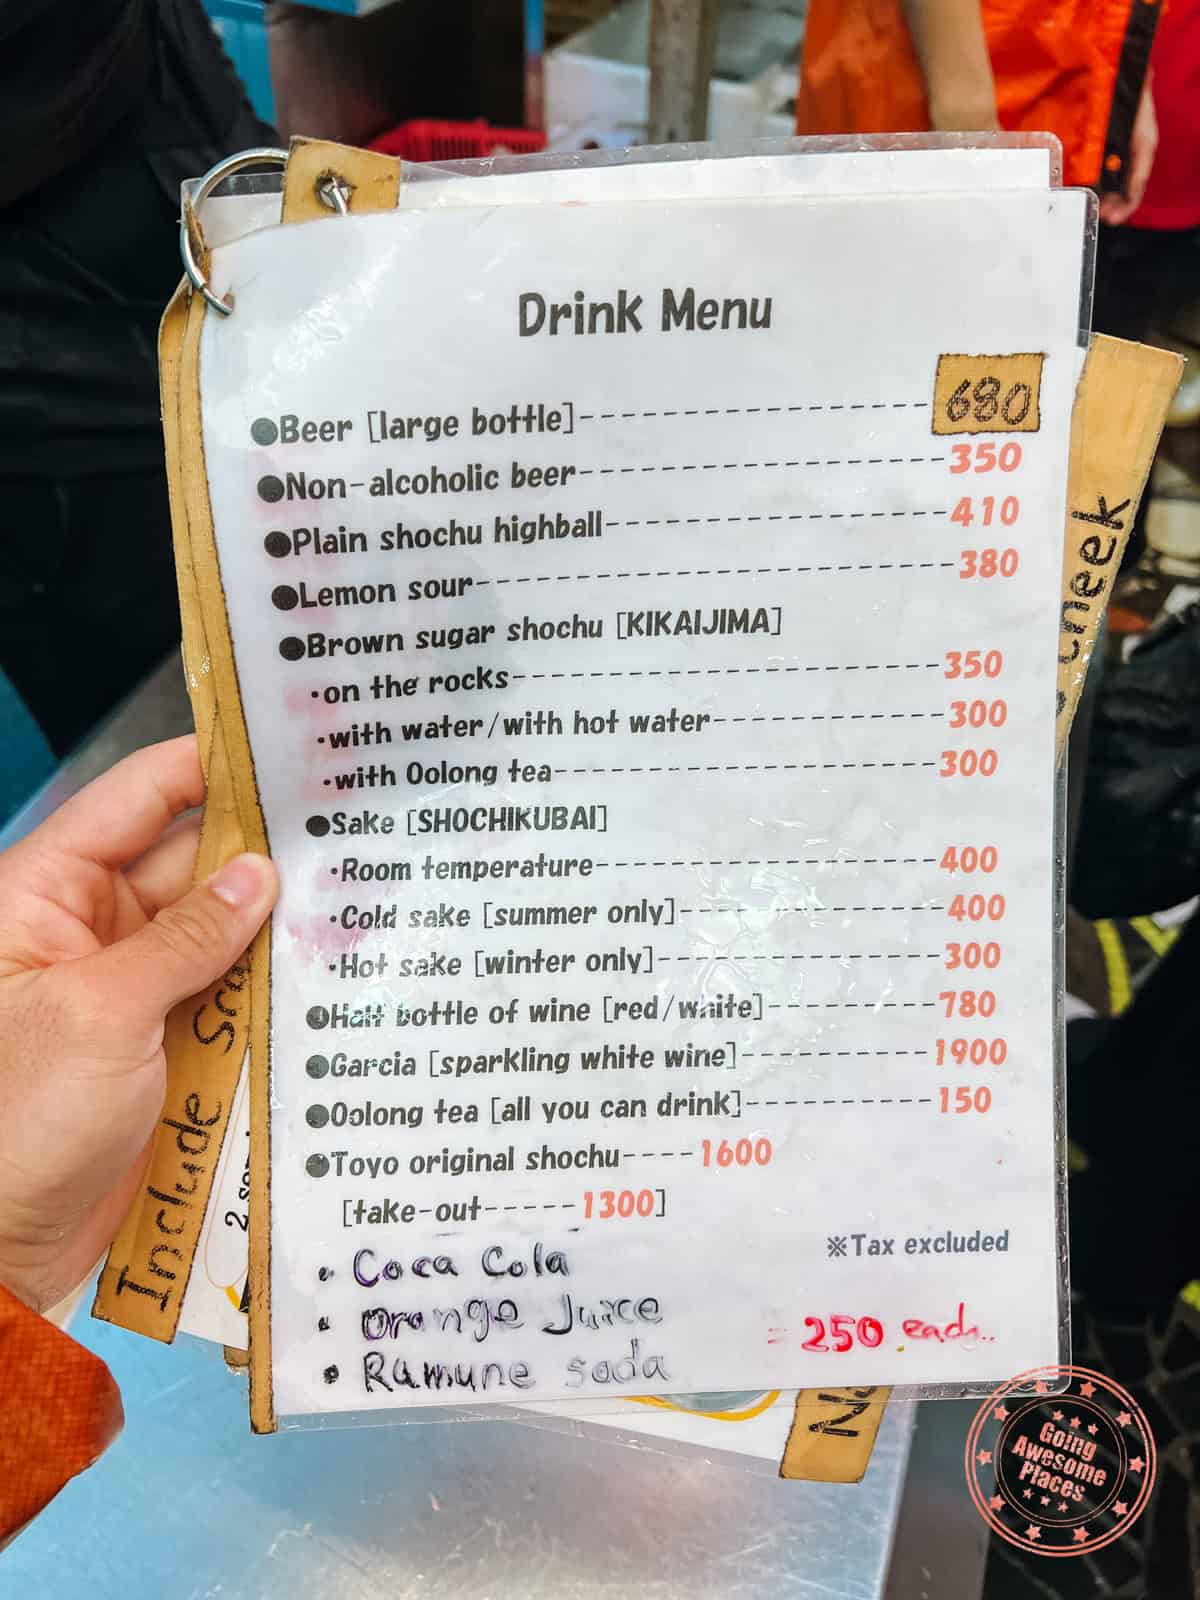 Drink Menu
●Beer [large bottle]------------------680
●Non-alcoholic beer------------------350
●Plain shochu highball----------------410
●Lemon sour----------------------380
●Brown sugar shochu [KIKAIJIMA]
・on the rocks---------------------350
・with water/with hot water-----------300
・with Oolong tea-------------------300
●Sake [SHOCHIKUBAI]
・Room temperature-----------------400
・Cold sake [summer only]-------------400
・Hot sake [winter only]--------------300
●Half bottle of wine [red/white]--------780
●Garcia [sparkling white wine]---------1900
●Oolong tea [all you can drink]---------150
●Toyo original shochu----1600
[take-out-----1300]
※Tax excluded
• Coca Cola
• Orange Juice
• Ramune soda
= 250 each..
Include
2
cheek
Going
Awesome
Places